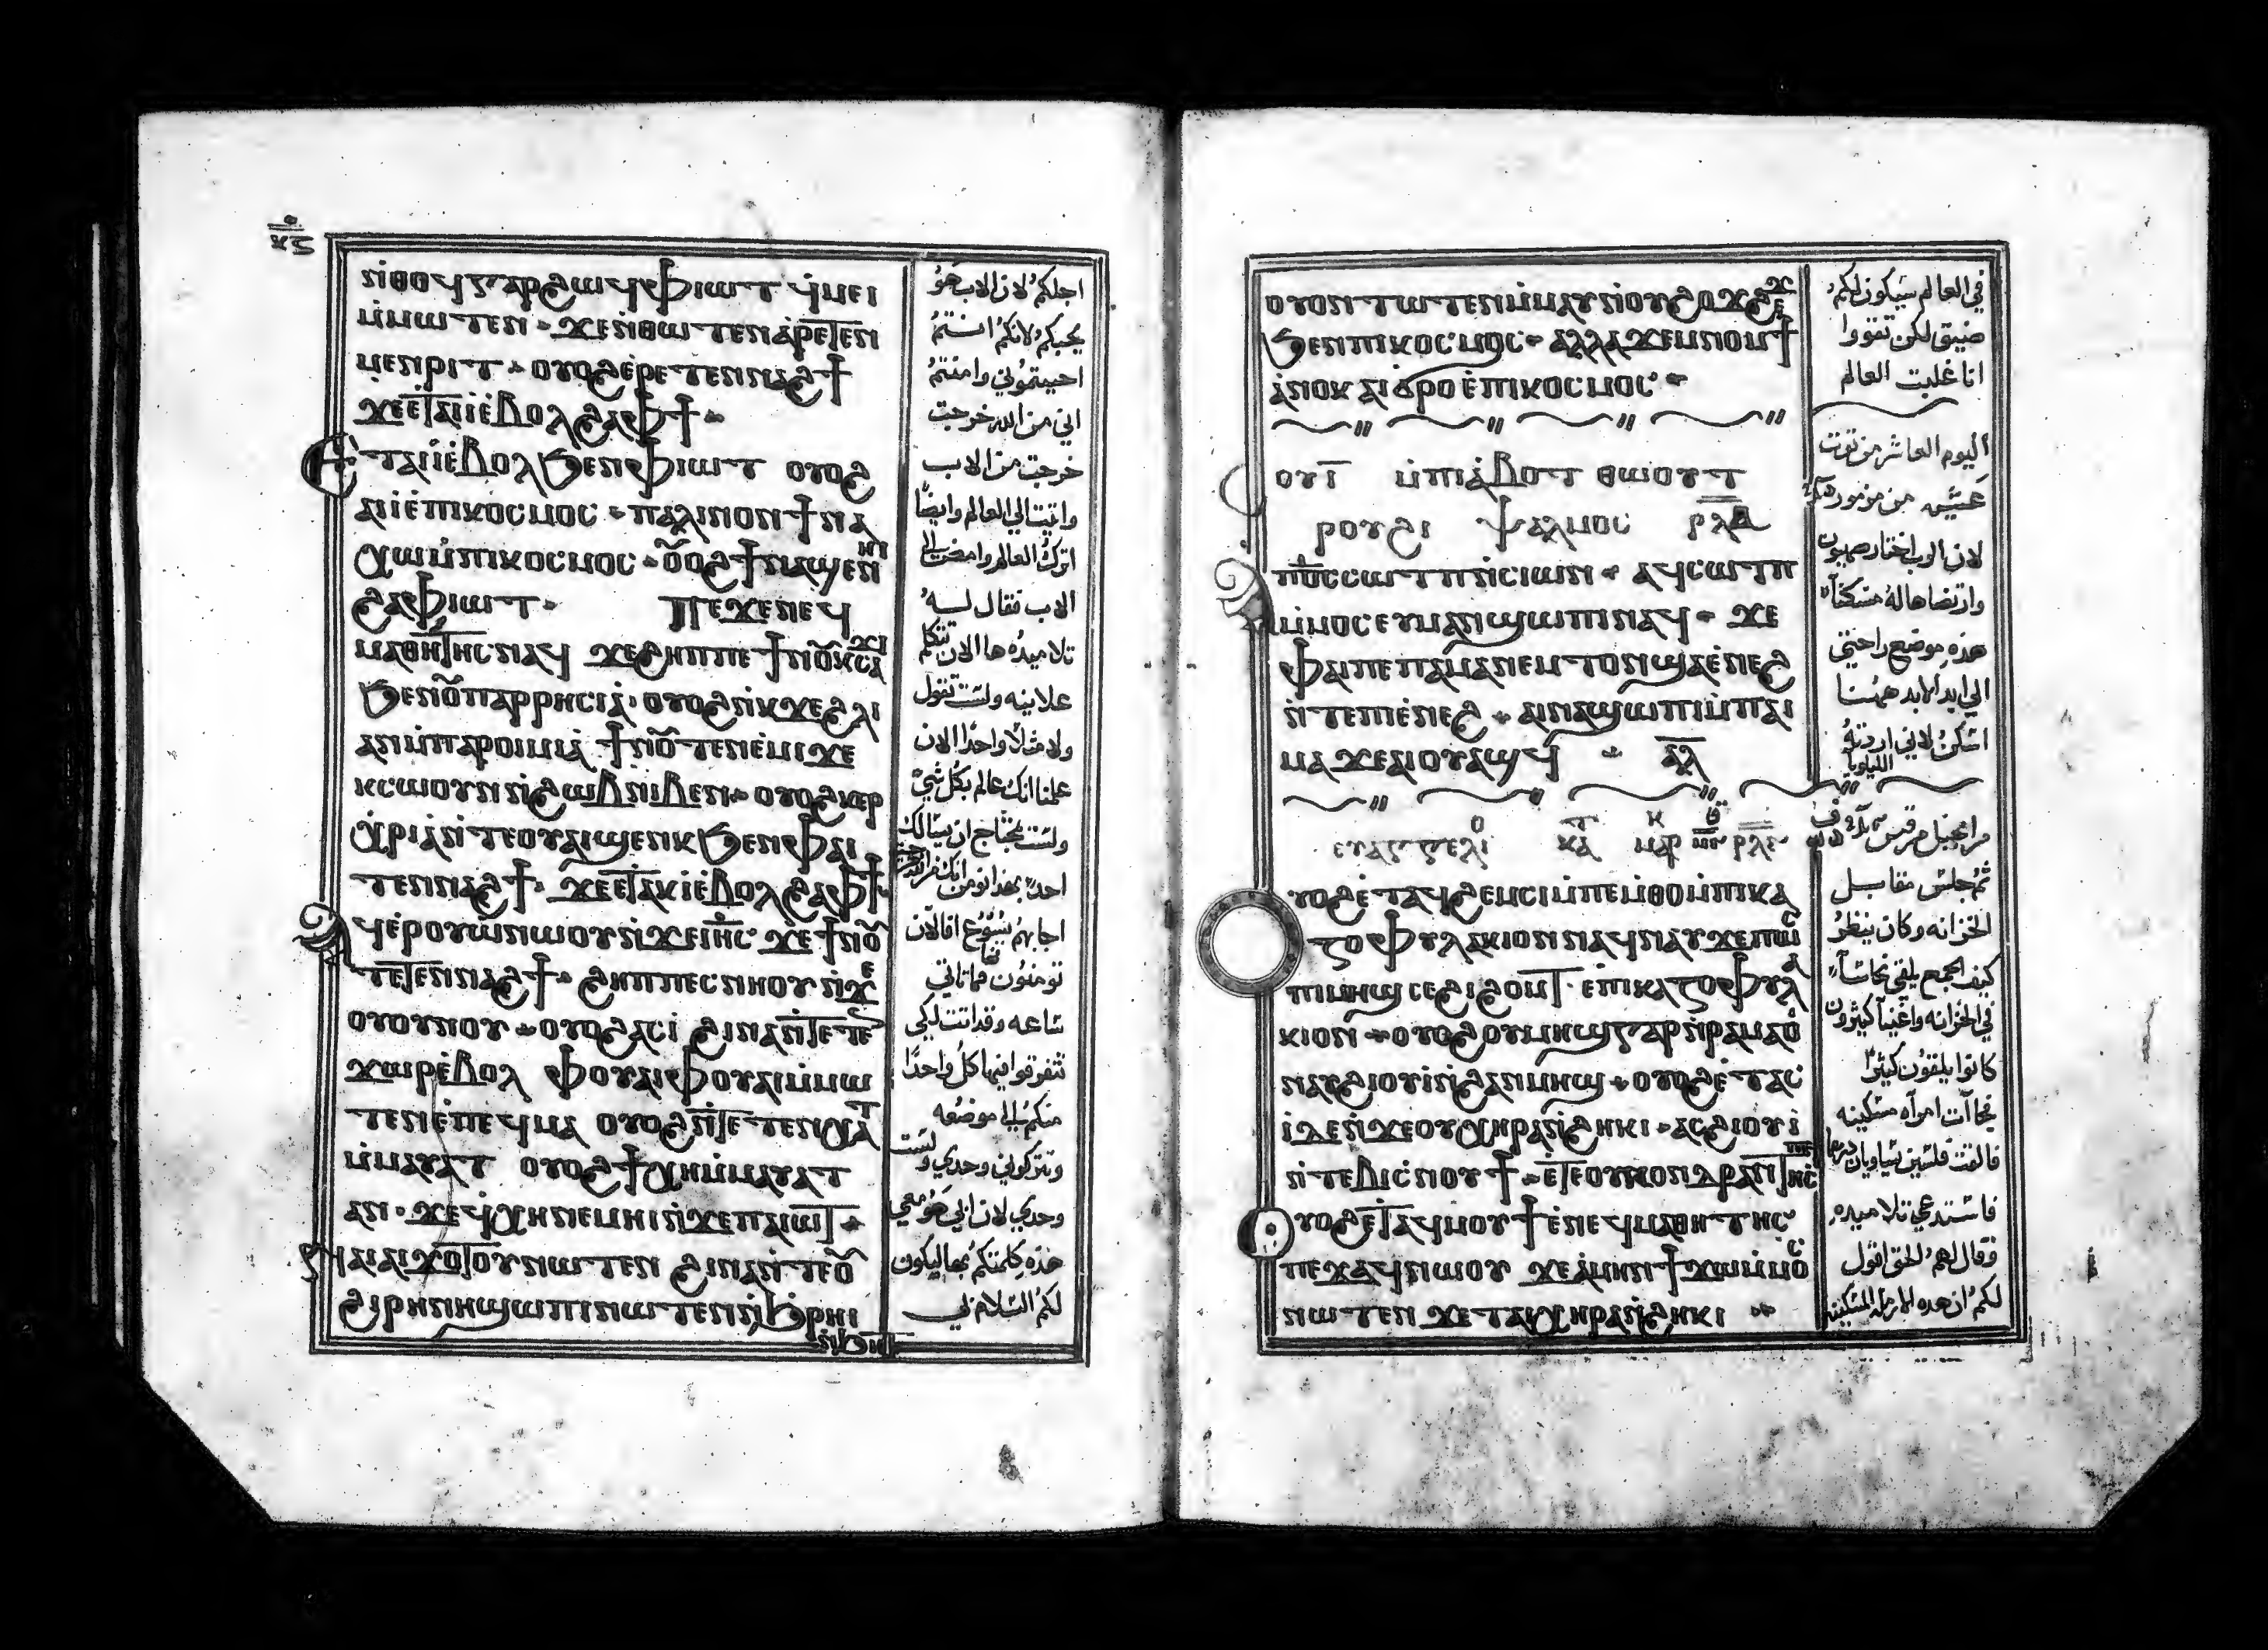 ⲕⲍ
ⲛ̇ⲑⲟϥ ⲅⲁⲣ ϩⲱϥ ⲫⲓⲱⲧ ϥ̇ⲙⲉⲓ
ⲙ̇ⲙⲱⲧⲉⲛ ϫⲉ ⲛ̇ⲑⲱⲧⲉⲛ ⲁ̇ⲣⲉⲧⲉⲛ
ⲙⲉⲛⲣⲓⲧ ⲟⲩⲟϩ ⲉ̇ⲣⲉⲧⲉⲛⲛⲁϩϯ
ϫⲉ ⲉⲧⲁⲓⲓ̇ ⲉ̇ⲃⲟⲗ ϩⲁ ⲫϯ
ⲉⲧⲁⲓⲓ̇ ⲉ̇ⲃⲟⲗ ϧⲉⲛ ⲫⲓⲱⲧ ⲟⲩⲟϩ
ⲁⲓⲓ̇ ⲉ̇ⲡⲓⲕⲟⲥⲙⲟⲥ ⲡⲁⲗⲓⲛ ⲟⲛ ϯⲛⲁ
ⲭⲱ ⲙ̇ⲡⲓⲕⲟⲥⲙⲟⲥ ⲟⲟϩ ϯⲛⲁϣⲉⲛⲏⲓ
ϩⲁ ⲫⲓⲱⲧ ⲡⲉϫⲉ ⲛⲉϥ
ⲙⲁⲑⲏⲧⲏⲥ ⲛⲁϥ ϫⲉ ϩⲏⲡⲡⲉ ϯⲛⲟ̄ ⲕⲥⲁϫⲓ
ϧⲉⲛ ⲟ̄ⲡⲁⲣⲣⲏⲥⲓⲁ̇ ⲟⲩⲟϩ ⲛ̇ⲕϫⲉ ϩⲗⲓ
ⲁⲛ ⲙ̇ⲡⲁⲣⲟⲓⲙⲓⲁ̇ ϯⲛⲟ̄ ⲧⲉⲛⲉ̇ⲙⲓ ϫⲉ
ⲕⲥⲱⲟⲩⲛ ⲛ̇ϩⲱⲃ ⲛⲓⲃⲉⲛ ⲟⲩⲟϩ ⲕⲉⲣ
ⲭ̇ⲣⲓⲁ̇ ⲛ̇ⲧⲉ ⲟⲩⲁⲓ ϣⲉⲛⲕ ϧⲉⲛ ⲫⲁⲓ
ⲧⲉⲛⲛⲁϩϯ ϫⲉ ⲉⲧⲁⲕⲓ̇ ⲉ̇ⲃⲟⲗ ϩⲁ ⲫϯ
ⲁϥⲉ̇ⲣⲟⲩⲱ̇ ⲛⲱⲟⲩ ⲛ̇ϫⲉ ⲓⲏ̄ⲥ ϫⲉ ϯⲛⲟ̄
ⲧⲉⲧⲉⲛⲛⲁϩϯ ϩⲏⲡⲡⲉ ⲥⲛⲏⲟⲩ ⲛ̇ϫⲉ
ⲟⲩⲟⲩⲛⲟⲩ ⲟⲩⲟϩ ⲁⲥⲓ̇ ϩⲓⲛⲁ ⲛ̇ⲧⲉⲧⲉⲛ
ϫⲱⲣ ⲉ̇ⲃⲟⲗ ⲫⲟⲩⲁⲓ ⲫⲟⲩⲁⲓ ⲙ̇ⲙⲱ
ⲧⲉⲛ ⲉ̇ⲡⲉϥⲙⲁ ⲟⲩⲟϩ ⲛ̇ⲧⲉⲧⲉⲛⲭⲁⲧ
ⲙ̇ⲙⲁⲩⲁⲧ ⲟⲩⲟϩ ϯⲭⲏ ⲙ̇ⲙⲁⲩⲁⲧ
ⲁⲛ ϫⲉ ϥ̇ⲭⲏ ⲛⲉⲙⲏⲓ ⲛ̇ϫⲉ ⲡⲁⲓⲱⲧ
ⲛⲁⲓ ⲁⲓϫⲟⲧⲟⲩ ⲛⲱⲧⲉⲛ ϩⲓⲛⲁ ⲛ̇ⲧⲉ ⲟ̄
ϩⲓⲣⲏⲛⲏ ϣⲱⲡⲓ ⲛⲱⲧⲉⲛ ⲛ̇ϧⲣⲏⲓ
ⲛ̇ϧⲏⲧ
اجلكم لان الاب هو
يحبكم لانكم انتم
احببتموني وامنتم
اني من الله خرجت
خرجت من الاب
واتيت الي العالم وايضاً
اترك العالم وامضي الي
الاب فقال له
تلاميذه ها الان تتكلم
علانيه ولست تقول
ولا مثالاً واحداً الان
علمنا انك عالم بكل شي
ولست تحتاج ان يسالك
احد بهذا نومن انك من الله خرجت
اجابهم يسوع افالان
تومنون فها تاتي
ساعه وقد اتت لكي
تتفرقوا فيها كل واحداً
منكم الي موضعه
وتتركوني وحدي ولست
وحدي لان ابي هو معي
هذه كلمتكم بها ليكون
لكم السلام في
ⲟⲩⲟⲛⲧⲱⲧⲉⲛ ⲙ̇ⲙⲁⲩ ⲛ̇ⲟⲩϩⲟϫϩⲉϫ
ϧⲉⲛ ⲡⲓⲕⲟⲥⲙⲟⲥ ⲁⲗⲗⲁ ϫⲉⲙⲛⲟⲙϯ
ⲁ̇ⲛⲟⲕ ⲁⲓϭⲣⲟ ⲉ̇ⲡⲓⲕⲟⲥⲙⲟⲥ
ⲥⲟⲩ ⲓ̄ ⲙ̇ⲡⲓⲁ̇ⲃⲟⲧ ⲑⲱⲟⲩⲧ
ⲣⲟⲩϩⲓ ⲯⲁⲗⲙⲟⲥ ⲣⲗⲁ
ⲁⲡ︦ⲟ︦ⲥ ⲥⲱⲧⲡ ⲛ̇ⲥⲓⲱⲛ ⲁϥⲥⲱⲧⲡ
ⲙ̇ⲙⲟⲥ ⲉⲩⲙⲁⲛ̇ϣⲱⲡⲓ ⲛⲁϥ ϫⲉ
ⲫⲁⲓ ⲡⲉ ⲡⲁⲙⲁⲛⲉⲙⲧⲟⲛ ϣⲁ ⲉ̇ⲛⲉϩ
ⲛ̇ⲧⲉ ⲡⲓⲉ̇ⲛⲉϩ ⲁⲓⲛⲁϣⲱⲡⲓ ⲙ̇ⲡⲁⲓ
ⲙⲁ ϫⲉ ⲁⲓⲟⲩⲁϣϥ ⲁ̄ⲗ̄
ⲉⲩⲁⲅⲅⲉⲗⲓⲟ ⲕⲁⲧⲁ ⲙⲁⲣⲕ ⲣⲗⲉ
ⲟⲩⲟϩ ⲉ̇ⲧⲁϥϩⲉⲙⲥⲓ ⲙ̇ⲡⲉⲙⲑⲟ ⲙ̇ⲡⲓⲕⲁ
ⲍⲟⲫⲩⲗⲁⲕⲓⲟⲛ ⲛⲁϥⲛⲁⲩ ϫⲉ ⲡⲱⲥ
ⲡⲓⲙⲏϣ ⲥⲉϩⲓϩⲟⲙⲧ ⲉ̇ⲡⲓⲕⲁⲍⲟⲫⲩⲗⲁ
ⲕⲓⲟⲛ ⲟⲩⲟϩ ⲟⲩⲙⲏϣ ⲅⲁⲣ ⲛ̇ⲣⲁⲙⲁⲟ̇
ⲛⲁⲩϩⲓⲟⲩⲓ̇ ⲛ̇ϩⲁⲛⲙⲏϣ ⲟⲩⲟϩ ⲉ̇ⲧⲁⲥ
ⲓ̇ ⲇⲉ ⲛ̇ϫⲉ ⲟⲩⲭⲏⲣⲁ ⲛ̇ϩⲏⲕⲓ ⲁⲥϩⲓⲟⲩⲓ̇
ⲛ̇ⲧⲉⲃⲓ ⲥ̇ⲛⲟⲩϯ ⲉ̇ⲧⲉ ⲟⲩⲕⲟⲛⲇⲣⲁⲛⲧⲏⲥ ⲡⲉ
ⲟⲩⲟϩ ⲉ̇ⲧⲁϥⲙⲟⲩϯ ⲉ̇ⲛⲉϥⲙⲁⲑⲏⲧⲏⲥ
ⲡⲉϫⲁϥ ⲛⲱⲟⲩ ϫⲉ ⲁ̇ⲙⲏⲛ ϯϫⲱ ⲙ̇ⲙⲟⲥ
ⲛⲱⲧⲉⲛ ϫⲉ ⲧⲁⲓⲭⲏⲣⲁ ⲛ̇ϩⲏⲕⲓ
في العالم سيكون لكم
ضيق لكن تقووا
انا غلبت العالم
اليوم العاشر من توت
عشيه من مزمور
لان الرب اختار صهيون
وارتضاها له مسكناً
هذه موضع راحتي
الي ابد الابد ههنا
اسكن لاني اردته
الليلويا
من انجيل مرقس
ثم جلس مقابل
الخزانه وكان ينظر
كيف الجمع يلقي نحاساً
في الخزانه واغنيا كثيرون
كانوا يلقون كثيراً
فجاآت امراه مسكينه
فالقت فلسين يساويان
فاستدعي تلاميذه
وقال لهم الحق اقول
لكم ان هذه الارمله المسكينه